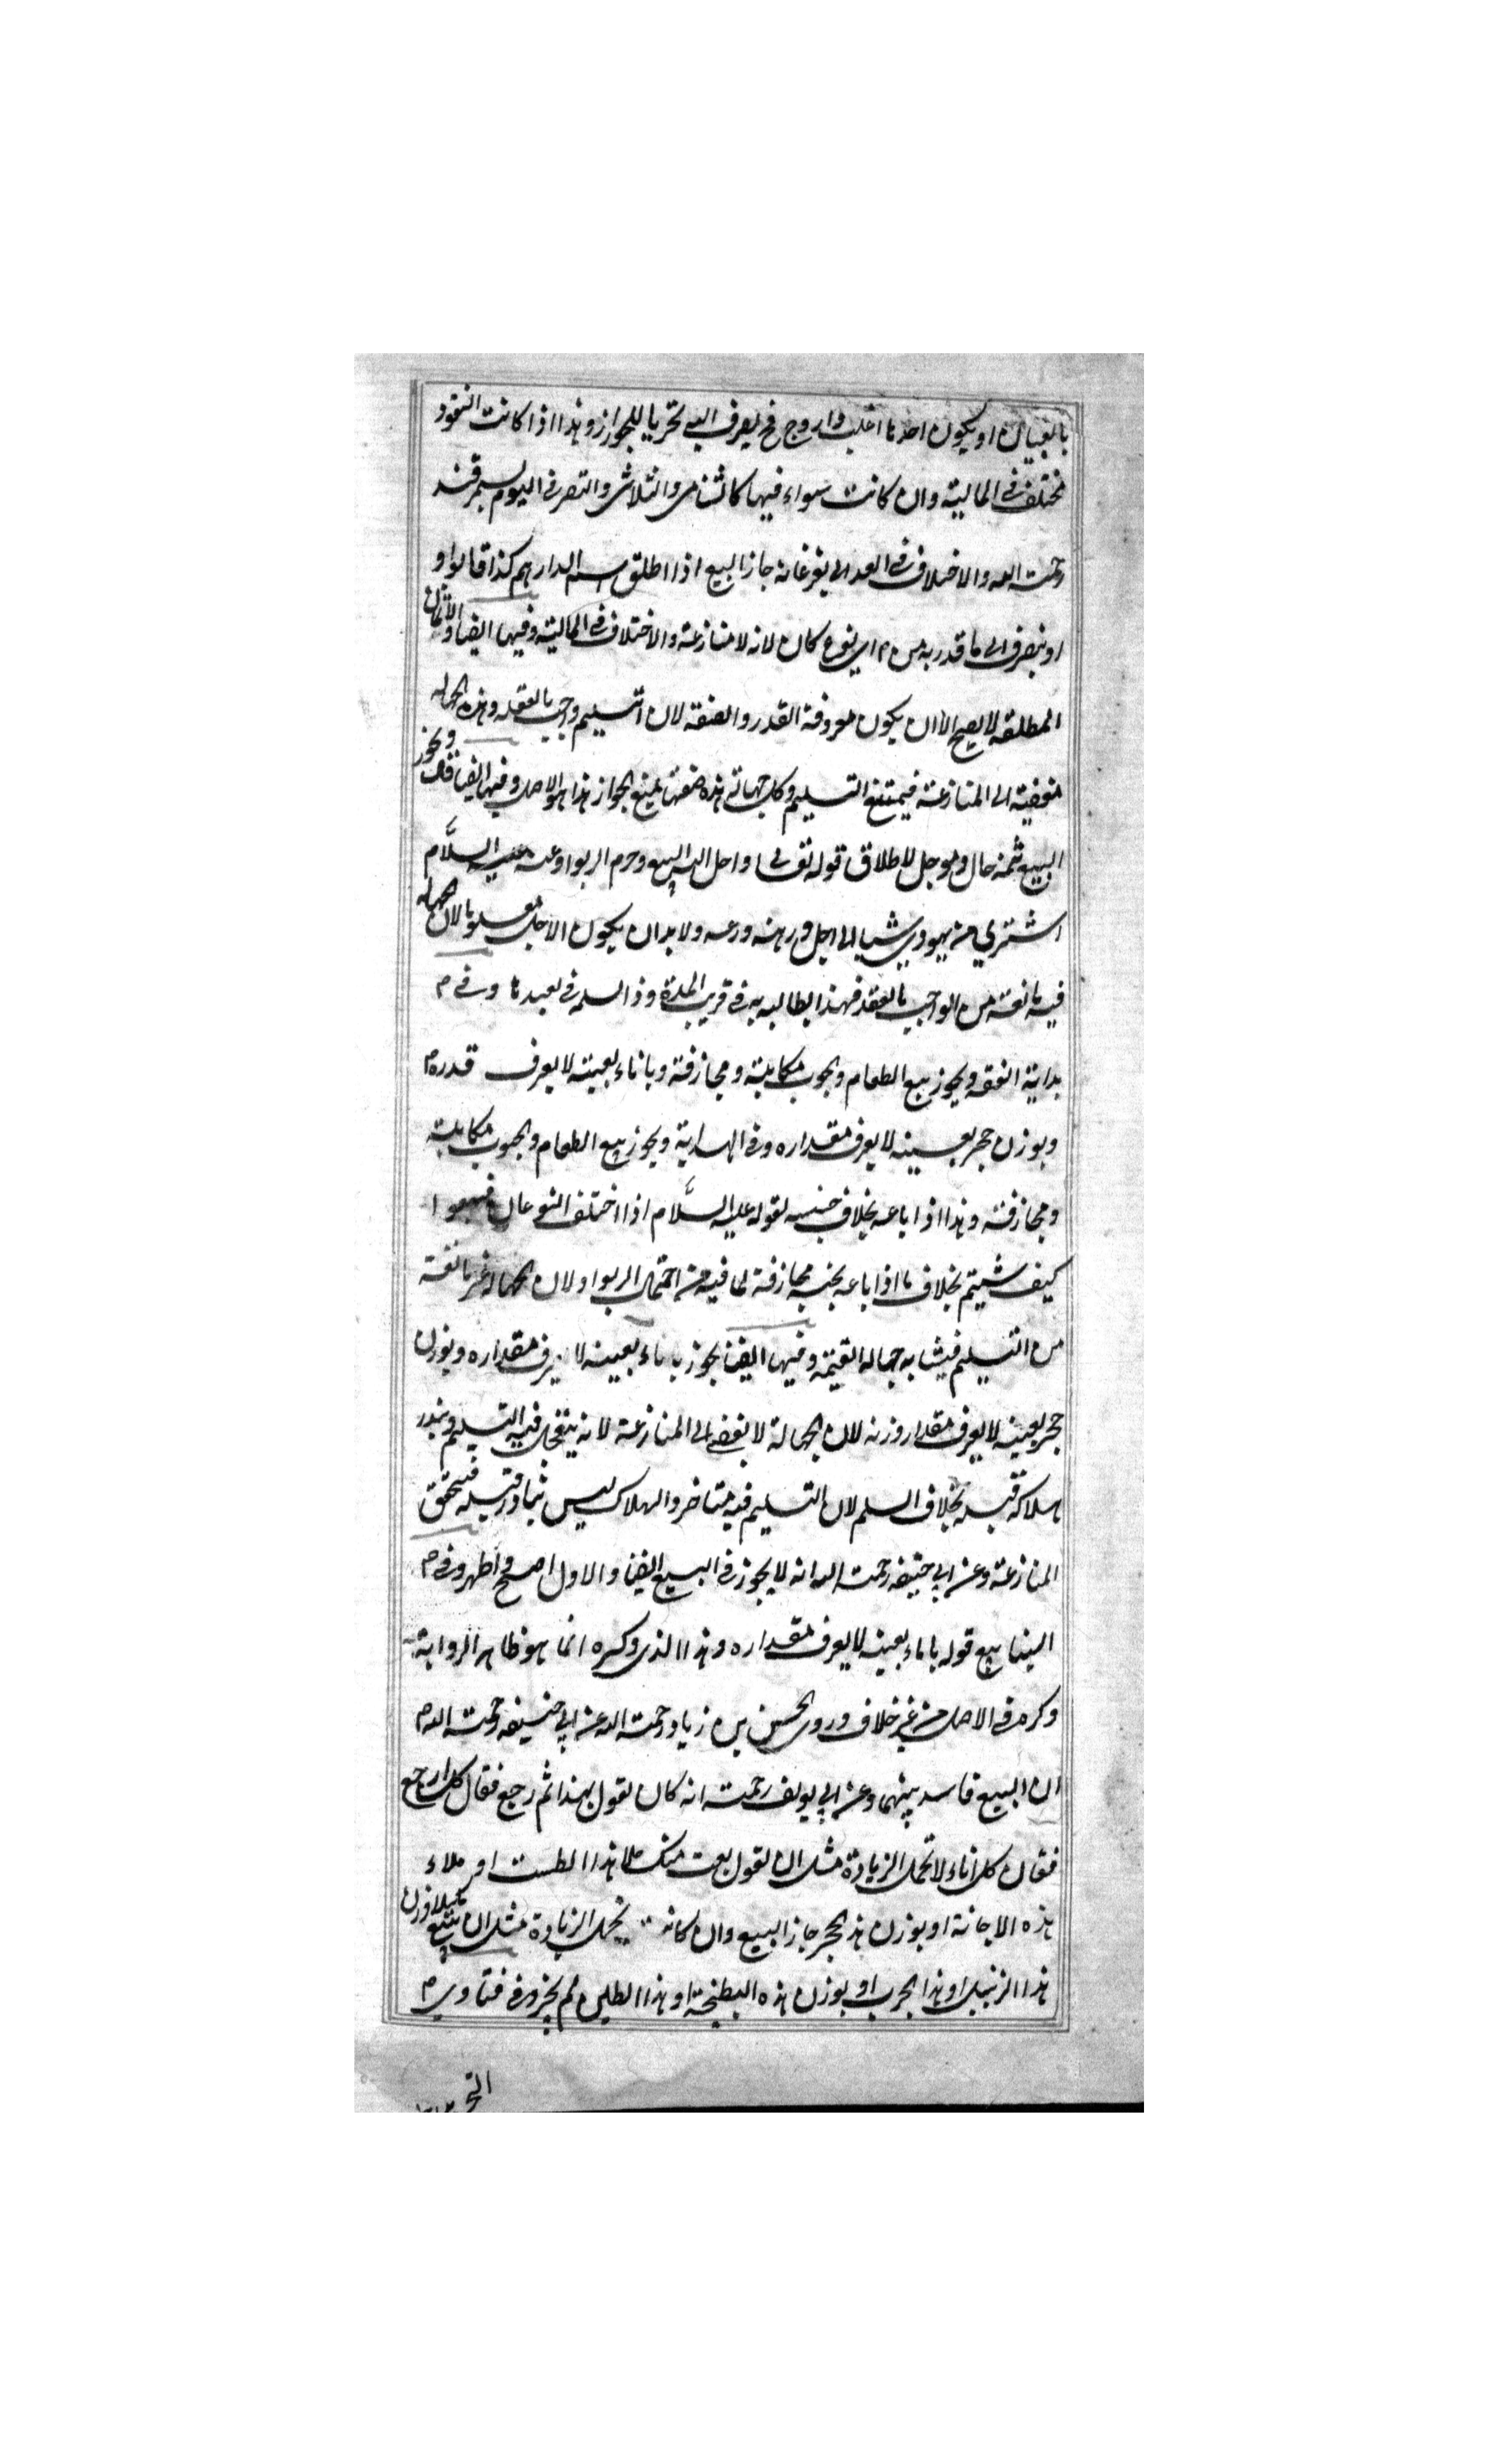 بالبيان او يكون احدها اغلب واروج فح يصرف اليه تحريا للجواز وهذا اذا كانت النقود
مختلف فى المالية وان كانت سواء فيها كالثنائى والثلاثى والنصر فى اليوم بسمرقند
رحمت الله والاختلاف فى العدالى بفرغانه جاز البيع اذا اطلق اسم الدارهم كذا قالوا و
او ينصرف الى ما قدر به من اى نوع كان لانه لا منازعة والاختلاف فى المالية وفيها ايضا والاثمان
المطلقه لا يصح الا ان يكون معروفة القدر والصفة لان التسليم واجب بالعقد وهذه الجهاله
مفضية الى المنازعة فيمتنع التسليم وكل جهالة هذه صفتها يمنع الجواز هذا هو الاصل وفيها ايضا قال ويجوز
البيع ثمنه حال وموجل لاطلاق قوله تعالى واحل الله البيع وحرم الربوا وعنه عليه السلام
اشترى من يهودى شيا الى اجل ورهنه درعه ولا بد ان يكون الاجل معلوما لان الجهاله
فيه مانعة من الواجب بالعقد فهذا يطالبه به فى قريب المدة وذا السلمه فى بعيدها وفى م
بداية الفقه ويجوز بيع الطعام والحبوب مكايلة ومجازفة وباناء بعينه لا يعرف قدره م
وبوزن حجر بعينه لا يعرف مقداره وفى الهداية ويجوز بيع الطعام والحبوب مكايلة
ومجازفة وهذا اذا باعه بخلاف جنسه لقوله عليه السلام اذا اختلف النوعان فبيعوا
كيف شيتم بخلاف ما اذا باعه بجنسه مجازفة لما فيه من احتمال الربوا ولان الجهالة غير مانعة
من التسليم فيشابه جهاله القيمة وفيها ايضا يجوز باناء بعينه لا يعرف مقداره وبوزن
حجر بعينه لا يعرف مقدار وزنه لان الجهالة لا تفضى الى المنازعة لانه يتعجل فيه التسليم ويندر
هلاكه قبله بخلاف السلم لان التسليم فيه متاخر والهلاك ليس بنادر قبله فيتحقق
المنازعة وعن ابى حنيفه رحمت الله انه لا يجوز فى البيع ايضا والاول اصح واظهر وفى م
الينابيع قوله باناء بعينه لا يعرف مقداره وهذا الذى ذكره انما هو ظاهر الرواية
ذكره فى الاصل من غير خلاف وروى الحسن بن زياد رحمت الله عن ابى حنيفه رحمت الله م
ان البيع فاسد بينهما وعن ابى يوسف رحمت انه كان يقول بهذا ثم رجع فقال كل ارجع
فقال كل اناء لا تحمل الزيادة مثل ان يقول بعت منك ملا هذا الطست او ملاء
هذه الاجانة او بوزن هذ الحجر جاز البيع وان كانه يحمل الزيادة مثل ان يبيع
هذا الزنبيل او هذا الجرب او بوزن هذه البطيخة او هذا الطين لم يجز وفى فتاوى م